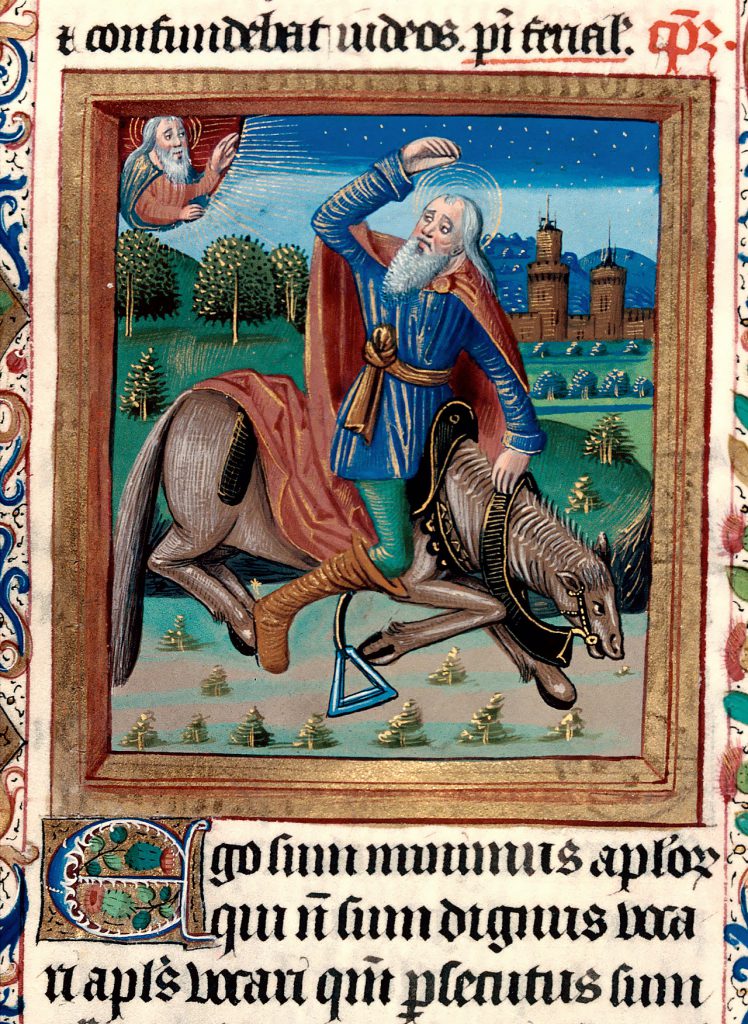 ⁊ confundebat iudeos. pī ferial'.
Ego sum minimus apl'oꝝ
qui n̄ sum dignus voca
ri apl's vocari qm̄ ꝑsecutus sum